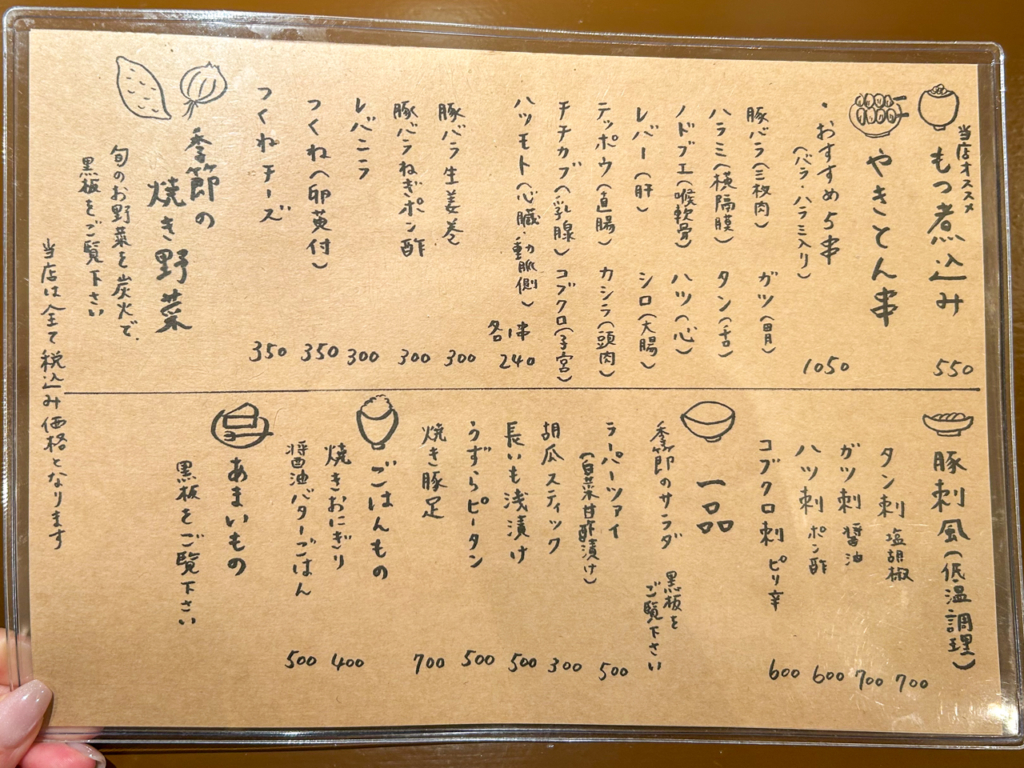 当店オススメ
もつ煮込み 550
やきとん串
・おすすめ5串 1050
(バラ・ハラミ入り)
豚バラ(三枚肉) ガツ(胃)
ハラミ(横隔膜) タン(舌)
ノドブエ(喉軟骨) ハツ(心)
レバー(肝) シロ(大腸)
テッポウ(直腸) カシラ(頭肉)
チチカブ(乳腺) コブクロ(子宮)
ハツモト(心臓・動脈側) 各1串 240
豚バラ生姜巻 300
豚バラねぎポン酢 300
レバニラ 300
つくね(卵黄付) 350
つくねチーズ 350
季節の
焼き野菜
旬のお野菜を炭火で、
黒板をご覧下さい
豚刺風(低温調理)
タン刺 塩胡椒 700
ガツ刺 醤油 700
ハツ刺 ポン酢 600
コブクロ刺 ピリ辛 600
一品
季節のサラダ 黒板を
ご覧下さい
ラーパーツァイ 500
(白菜甘酢漬け)
胡瓜スティック 300
長いも浅漬け 500
うずらピータン 500
焼き豚足 700
ごはんもの
焼きおにぎり 400
醤油バターごはん 500
あまいもの
黒板をご覧下さい
当店は全て税込み価格となります